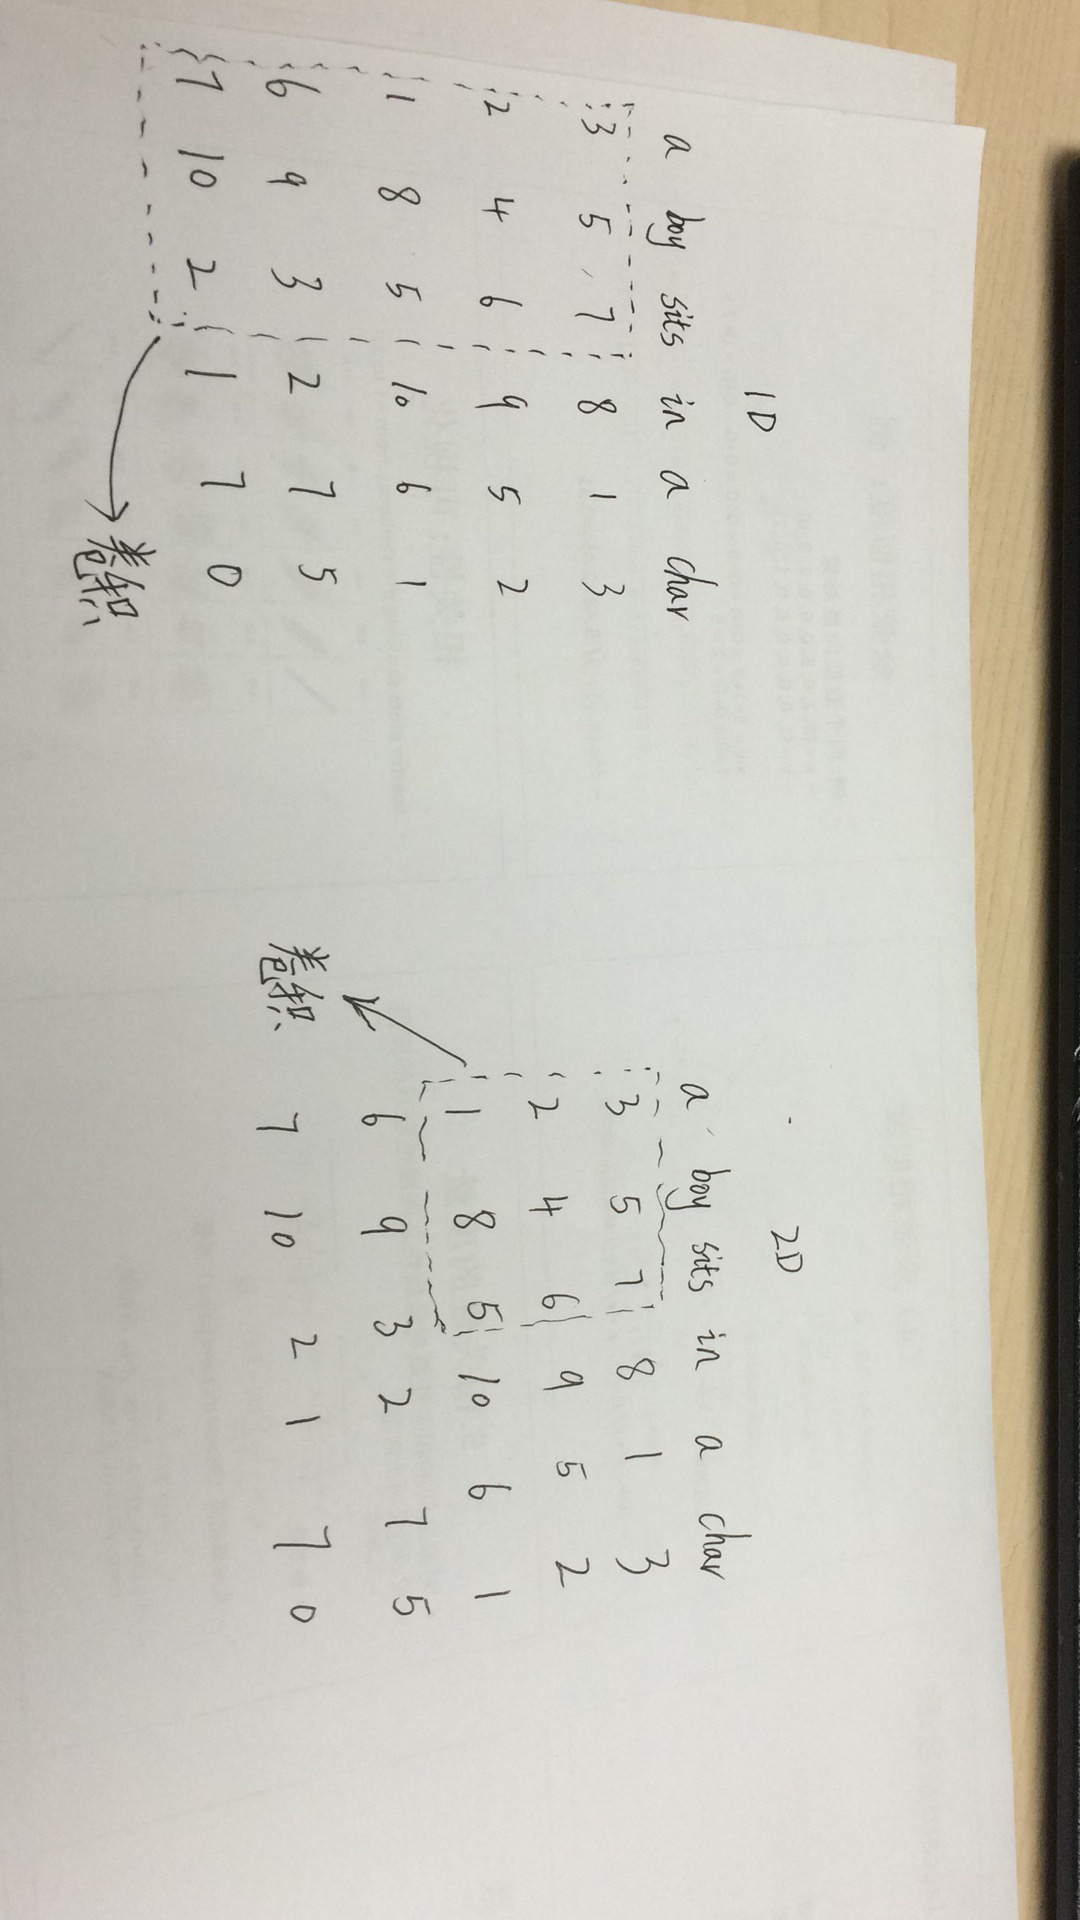 1D
a boy sits in a char
3 5 7 8 1 3
2 4 6 9 5 2
1 8 5 10 6 1
6 9 3 2 7 5
7 10 2 1 7 0
卷积
2D
a boy sits in a char
3 5 7 8 1 3
2 4 6 9 5 2
1 8 5 10 6 1
6 9 3 2 7 5
7 10 2 1 7 0
卷积